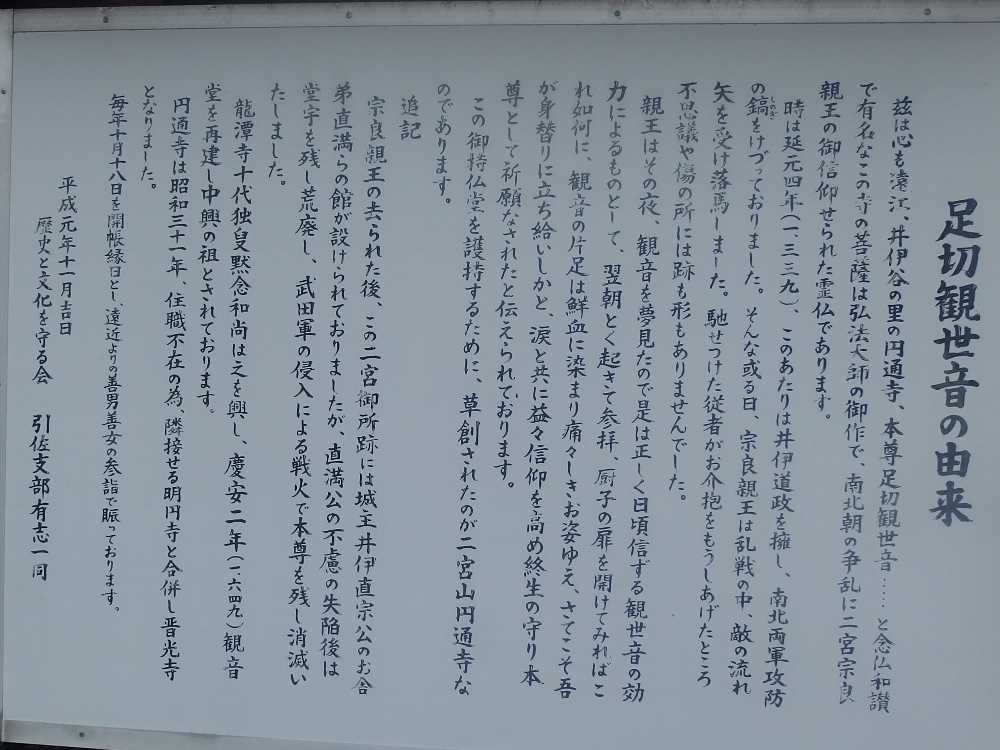 足切観世音の由来
兹は心も遠江、井伊谷の里の円通寺、本尊足切観世音……と念仏和讃
で有名なこの寺の菩薩は弘法大師の御作で、南北朝の争乱に二宮宗良
親王の御信仰せられた霊仏であります。
時は延元四年(一三三九)、このあたりは井伊道政を擁し、南北両軍攻防
の鎬をけづっておりました。そんな或る日、宗良親王は乱戦の中、敵の流れ
しのぎ
矢を受け落馬しました。馳せつけた従者がお介抱をもうしあげたところ
不思議や傷の所には跡も形もありませんでした。
親王はその夜、観音を夢見たので是は正しく日頃信ずる観世音の効
力によるものとして、翌朝とく起きて参拝、厨子の扉を開けてみればこ
れ如何に、観音の片足は鮮血に染まり痛々しきお姿ゆえ、さてこそ吾
が身替りに立ち給いしかと、涙と共に益々信仰を高め終生の守り本
尊として祈願なされたと伝えられております。
この御持仏堂を護持するために、草創されたのが二宮山円通寺な
のであります。
追記
宗良親王の去られた後、この二宮御所跡には城主井伊直宗公のお舎
弟直満らの館が設けられておりましたが、直満公の不慮の失陥後は
堂宇を残し荒廃し、武田軍の侵入による戦火で本尊を残し消滅い
たしました。
龍潭寺十代独叟黙念和尚は之を興し、慶安二年(一六四九)観音
堂を再建し中興の祖とされております。
円通寺は昭和三十一年、住職不在の為、隣接せる明円寺と合併し晋光寺
となりました。
毎年十月十八日を開帳縁日とし、遠近よりの善男善女の参詣で賑っております。
平成元年十一月吉日
歴史と文化を守る会 引佐支部有志一同